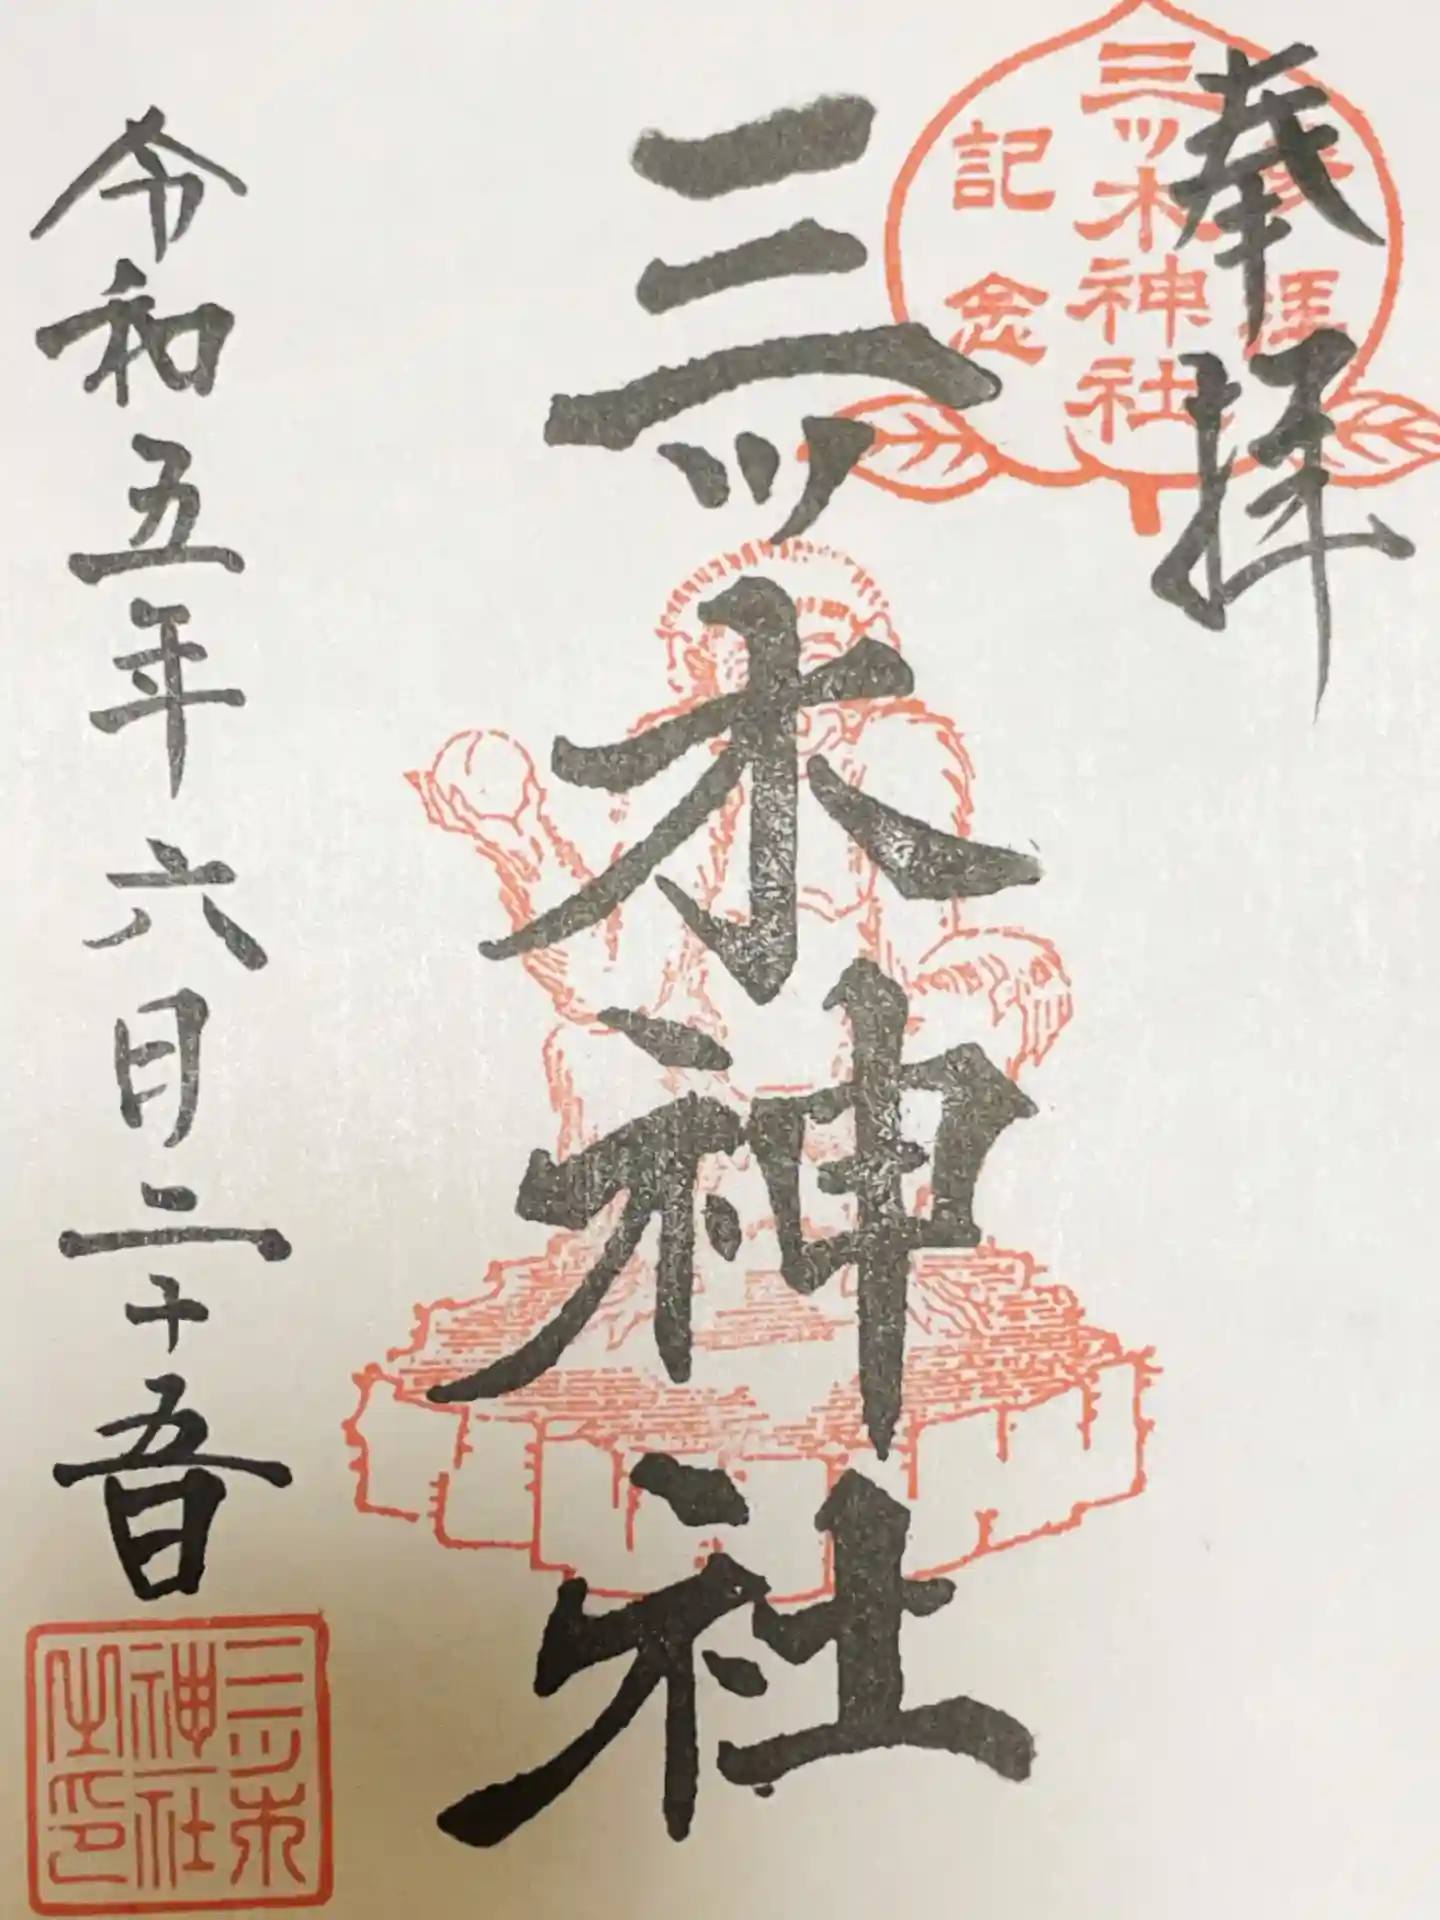 奉拝
参拝
三ッ木神社
記念
三ッ木神社
令和五年六月二十五日
三ッ木
神社
之印